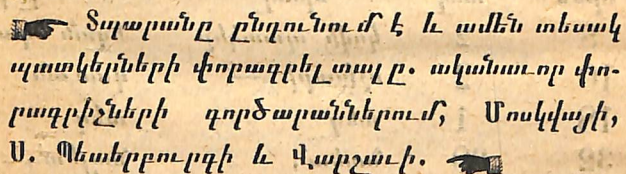 Տպարանը ընդունում է և ամեն տեսակ
պատկերների փորագրել տալը. ականաւոր փո-
րագրիչների գործարաններում, Մոսկվայի,
Ս. Պետերբուրգի և Վարշաւի.